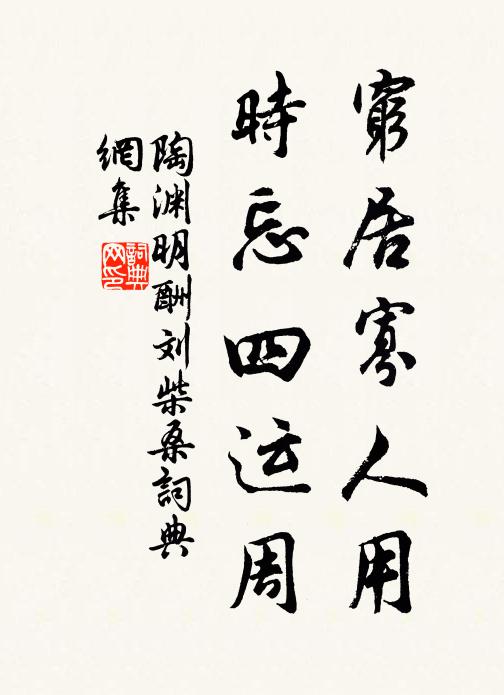 窮居寡人用
時忘四运周
陶渊明酬刘柴桑詞典
網集
詞典
网印